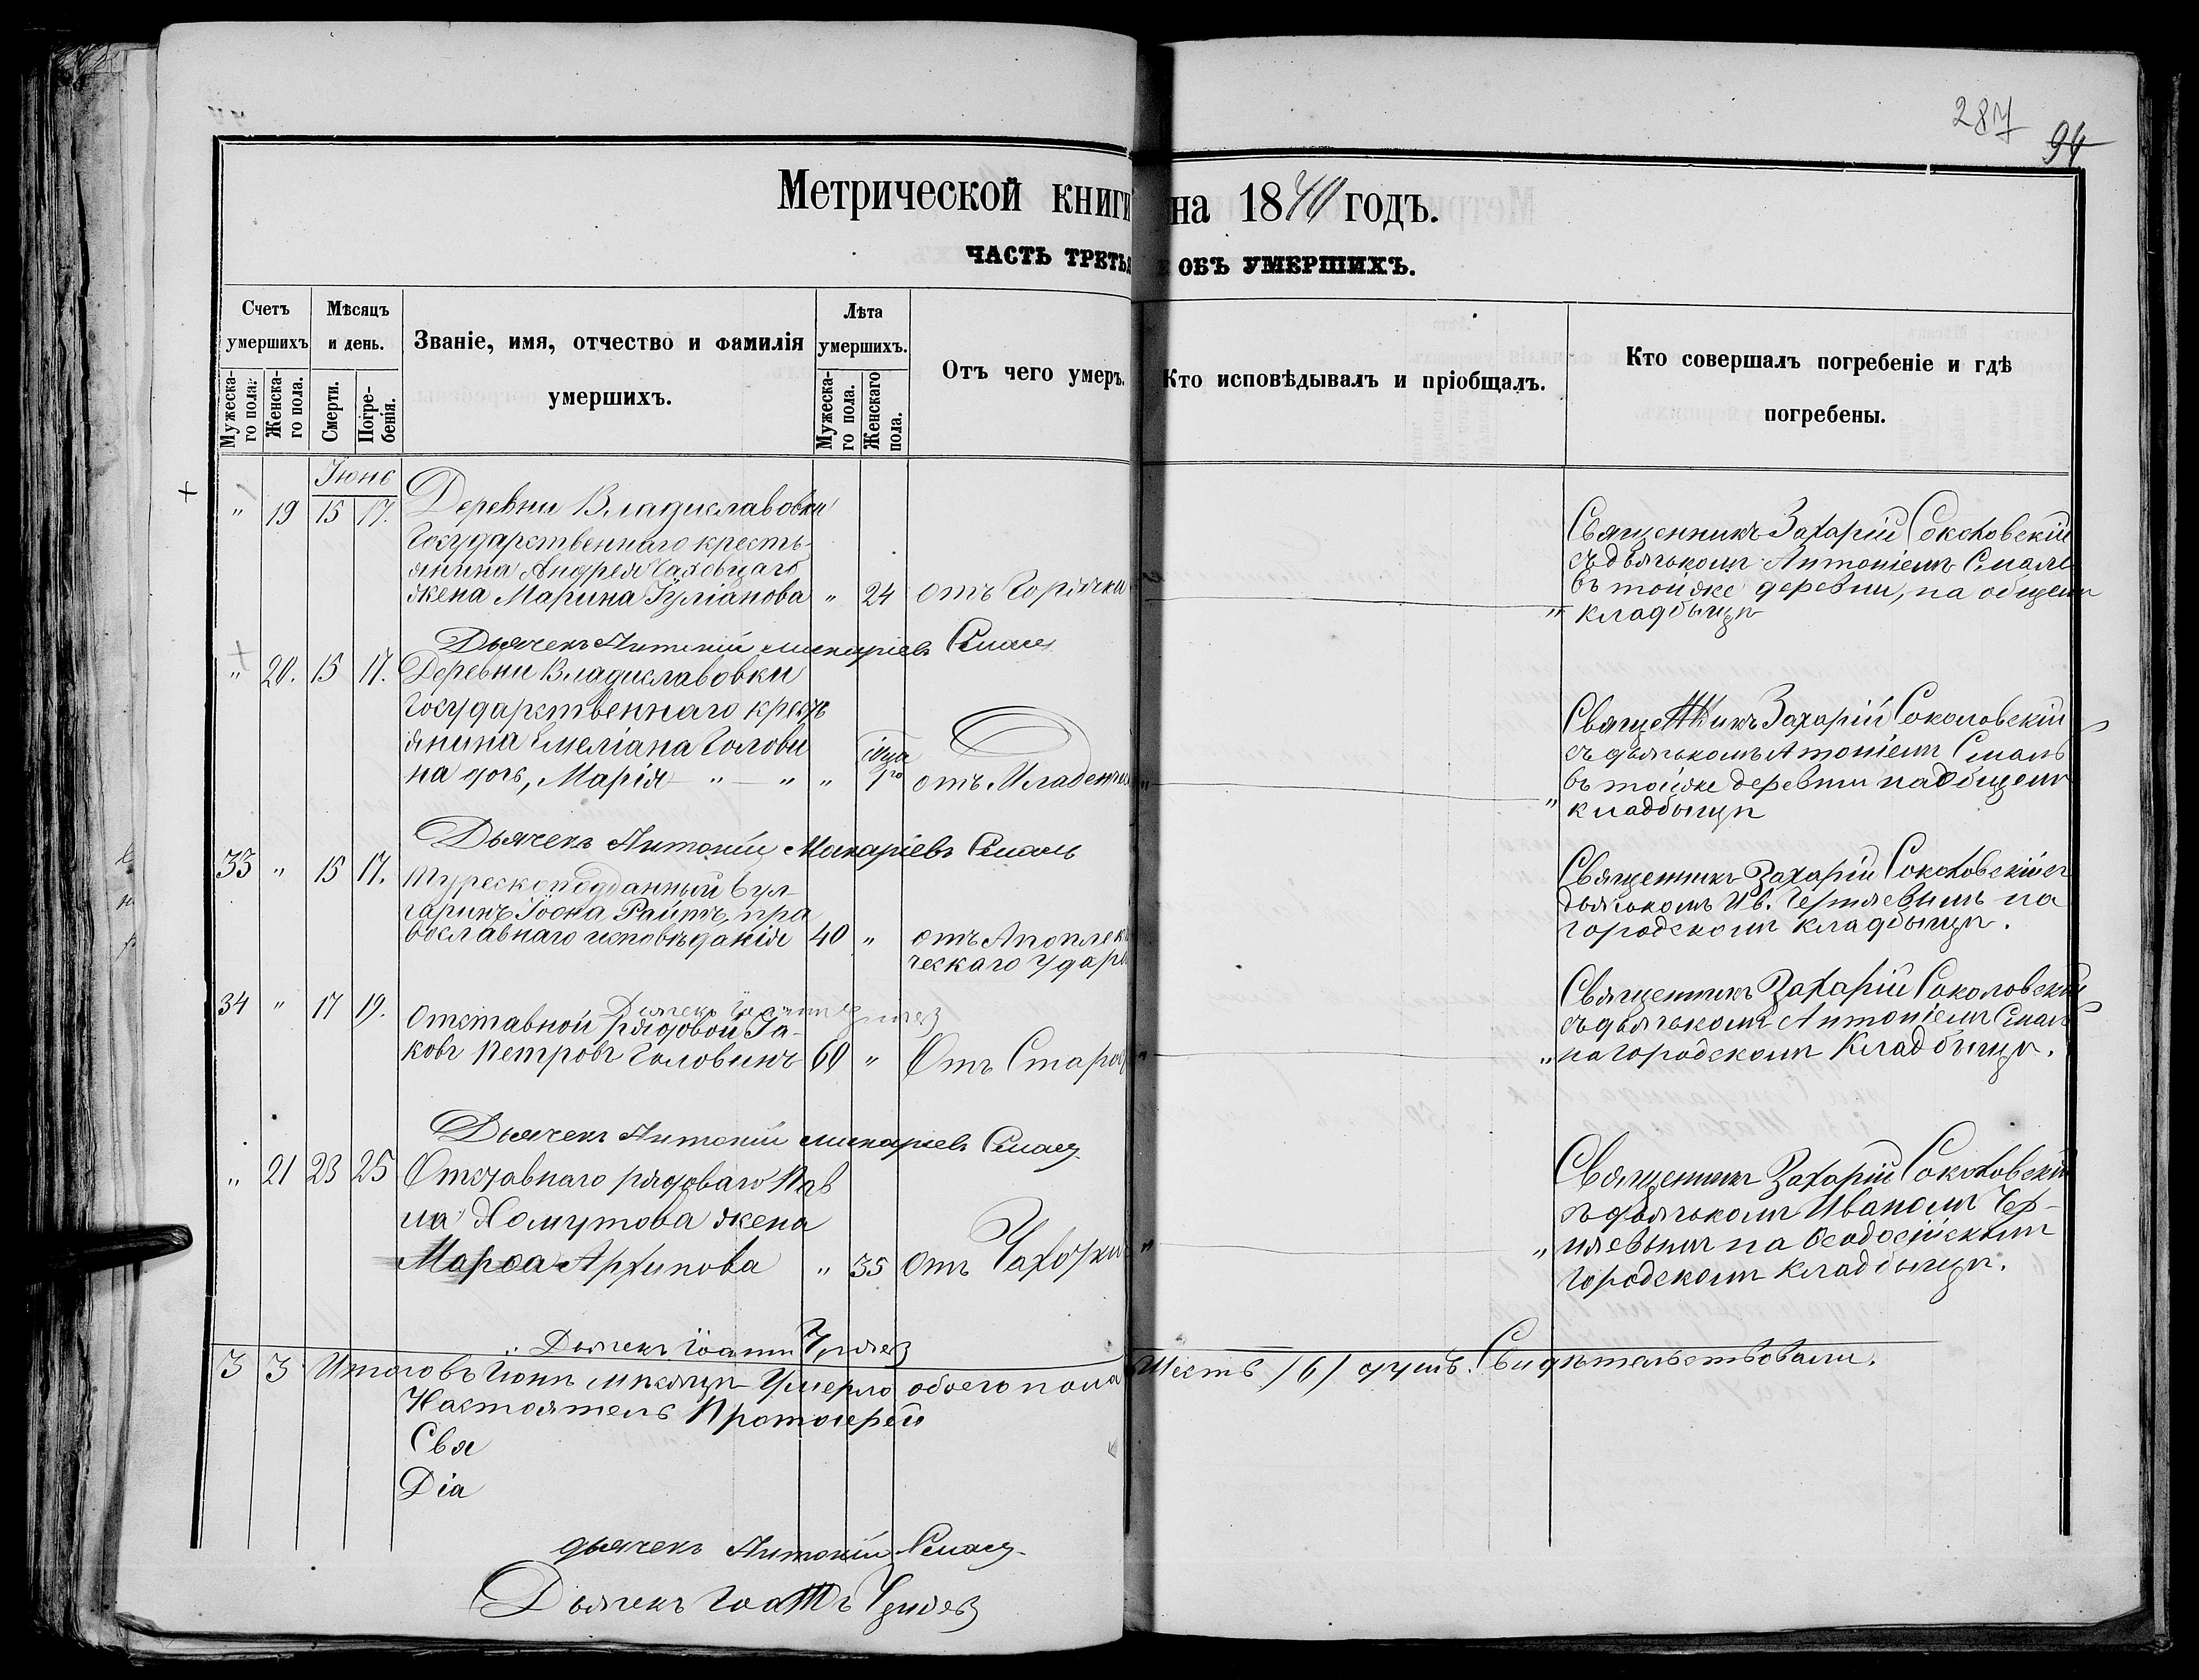 287
94
Метрической книги на 1840 годъ.
ЧАСТЬ ТРЕТЬЯ ОБЪ УМЕРШИХЪ.
Счетъ умершихъ
Мужеска-го пола.
Женска-го пола.
Мѣсяцъ и день.
Смерти.
Погре-бенія.
Званіе, имя, отчество и фамилія
умершихъ.
Лѣта умершихъ.
Мужеска-го пола.
Женскаго пола.
Отъ чего умеръ.
Кто исповѣдывалъ и пріобщалъ.
Кто совершалъ погребеніе и гдѣ
погребены.
Іюнь
" 19 15 17. Деревни Владиславовки
Государственнаго кресть-
янина Андрея
жена Марина Іуліанова " 24 отъ Горячки
Священникъ Захарій Соколовскій
съ дьячкомъ Антоніемъ Смаль
въ той же деревни, на общемъ
" кладбищѣ
Дьячекъ Антоній Макаріевъ Смаль
" 20. 15 17. Деревни Владиславовки
Государственнаго кресть
янина Емеліана Голови
на дочь, Марія " " "
отъ Младенч
Священникъ Захарій Соколовскій
съ дьячькомъ Антоніемъ Смаль
въ той же деревни на общемъ
" кладбищѣ
Дьячекъ Антоній Макаріевъ Смаль
33 " 15 17. Турецкоподданный Бул-
гаринъ Райтъ, пра
вославнаго исповѣданія 40 " отъ Апоплек
ческаго удара
Священникъ Захарій Соколовскій съ
дьячькомъ Ив. Черняевымъ на
городскомъ кладбищѣ.
Дьячекъ Іоаннъ Черняев
34 " 17 19. Отставной рядовой Іа-
ковъ Петровъ Головинъ 60 " Отъ Старос
Священникъ Захарій Соколовскій
съ дьячькомъ Антоніемъ Смаль
" на городскомъ Кладбищѣ.
Дьячекъ Антоній Макаріевъ Смаль
" 21 23 25 Отставнаго рядоваго Пав
ла Хомутова жена
Марѳа Архипова " 35 отъ Чахотки
Священникъ Захарій Соколовскій
съ дьячькомъ Иваномъ Чер-
" няевымъ на Ѳеодосійскомъ
городскомъ кладбищѣ.
Дьячекъ Іоаннъ Черняев
3 3 Итого въ Іюнѣ мѣсяцѣ Умерло обоего пола Шесть /6/ душъ. Свидѣтельствовали.
Настоятель Протоіерей
Свя
Діа
дьячекъ Антоній Смаль
Дьячекъ Іоаннъ Черняев